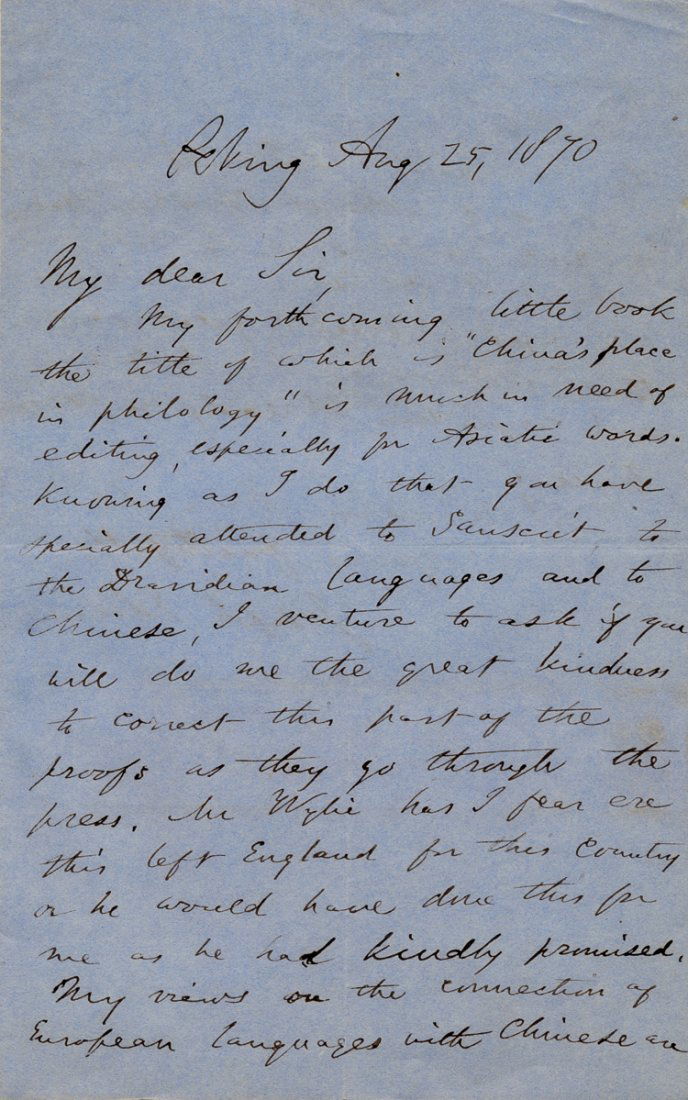 Peking Aug 25, 1870
My dear Sir,
My forthcoming little book
the title of which is "China's place
in philology" is much in need of
editing, especially for Asiatic words.
Knowing as I do that you have
specially attended to Sanscrit to
the Dravidian languages and to
Chinese, I venture to ask if you
will do me the great kindness
to correct this part of the
proofs as they go through the
press. Mr Wylie has I fear ere
this left England for this country
or he would have done this for
me as he had kindly promised.
My views on the connection of
European languages with Chinese are